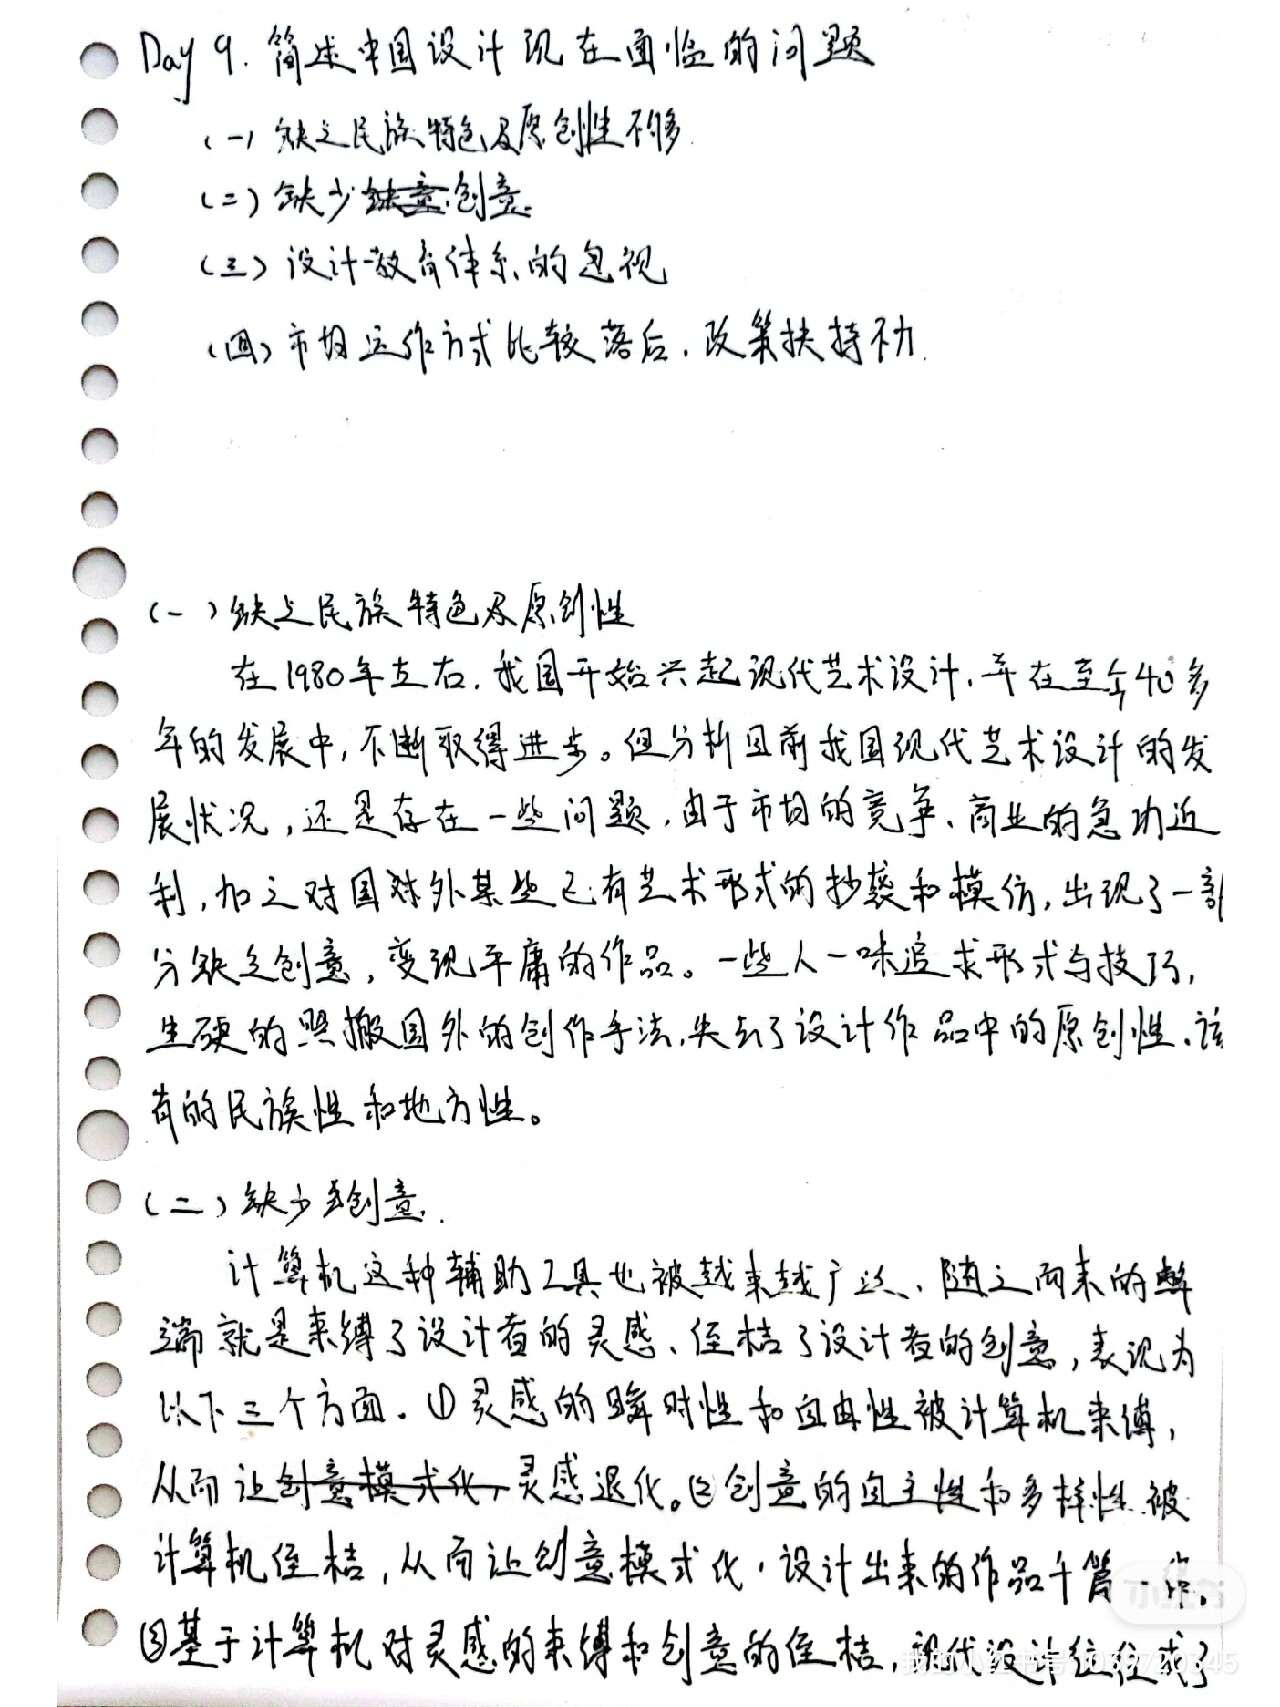 Day 9. 简述中国设计现在面临的问题
(一) 缺乏民族特色及原创性不够.
(二) 缺少创意.
(三) 设计教育体系的忽视
(四) 市场运作方式比较落后，政策扶持不力.
(一) 缺乏民族特色及原创性
在1980年左右，我国开始兴起现代艺术设计，并在至今40多
年的发展中，不断取得进步。但分析目前我国现代艺术设计的发
展状况，还是存在一些问题，由于市场的竞争、商业的急功近
利，加之对国外某些已有艺术形式的抄袭和模仿，出现了一部
分缺乏创意，变现平庸的作品。一些人一味追求形式与技巧，
生硬的照搬国外的创作手法，失去了设计作品中的原创性、该
有的民族性和地方性。
(二) 缺少创意.
计算机这种辅助工具也被越来越广泛、随之而来的弊
端就是束缚了设计者的灵感、侄桔了设计者的创意，表现为
以下三个方面。①灵感的瞬时性和自由性被计算机束缚，
从而让灵感退化。②创意的自主性和多样性被
计算机侄桔，从而让创意模式化，设计出来的作品千篇一律。
③基于计算机对灵感的束缚和创意的侄桔，现代设计往往成了
小红书
我的小红书号:1039720345